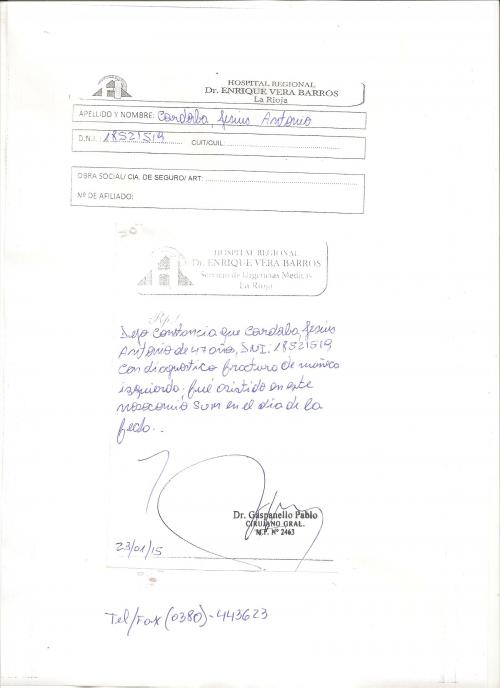 HOSPITAL REGIONAL
Dr. ENRIQUE VERA BARROS
La Rioja
APELLIDO Y NOMBRE: Cordoba, Jesus Antonio
D.N.I.: 18521519 CUIT/CUIL:
OBRA SOCIAL/ CIA. DE SEGURO/ ART:
Nº DE AFILIADO:
HOSPITAL REGIONAL
Dr. ENRIQUE VERA BARROS
Servicio de Urgencias Medicas
La Rioja
Rp.
Dejo Constancia que Cordoba, Jesus
Antonio de 47 años, DNI: 18521519
Con diagnostico fractura de muñeca
izquierda; fué asistido en este
nosocomio SUM en el dia de la
fecha..
Dr. Gaspanello Pablo
CIRUJANO GRAL.
M.P. Nº 2463
23/01/15
Tel/Fax (0380)-443623